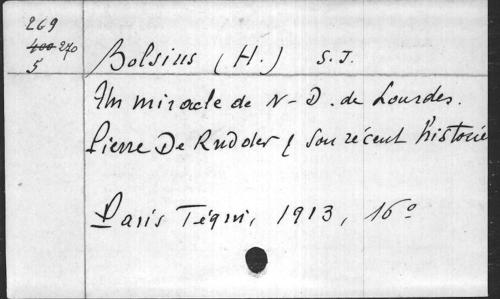 269
400 270
5
Bolsius (H.) S.J.
Un miracle de N-D. de Lourdes.
Pierre De Rudder & son récent historie
Paris Téqui, 1913, 16°